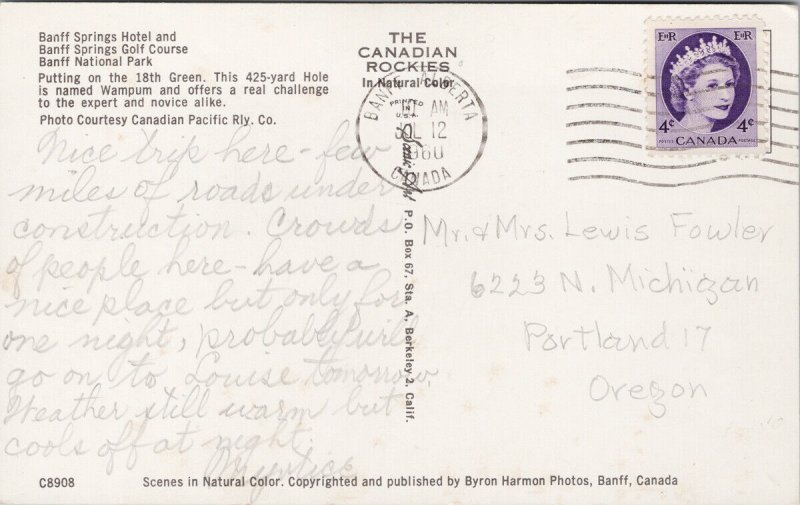 Banff Springs Hotel and
Banff Springs Golf Course
Banff National Park
Putting on the 18th Green. This 425-yard Hole
is named Wampum and offers a real challenge
to the expert and novice alike.
Photo Courtesy Canadian Pacific Rly. Co.
THE
CANADIAN
ROCKIES
In Natural Color
PRINTED
IN
U.S.A.
BANFF ALBERTA
AM
JUL 12
1960
CANADA
E II R E II R
4c 4c
POSTES CANADA POSTAGE
Nice trip here - few
miles of roads under
construction. Crowds
of people here - have a
nice place but only for
one night, probably will
go on to Louise tomorrow.
Weather still warm but
cools off at night.
Scenic Art P.O. Box 67, Sta. A, Berkeley 2, Calif.
Mr. & Mrs. Lewis Fowler
6223 N. Michigan
Portland 17
Oregon
C8908 Scenes in Natural Color. Copyrighted and published by Byron Harmon Photos, Banff, Canada